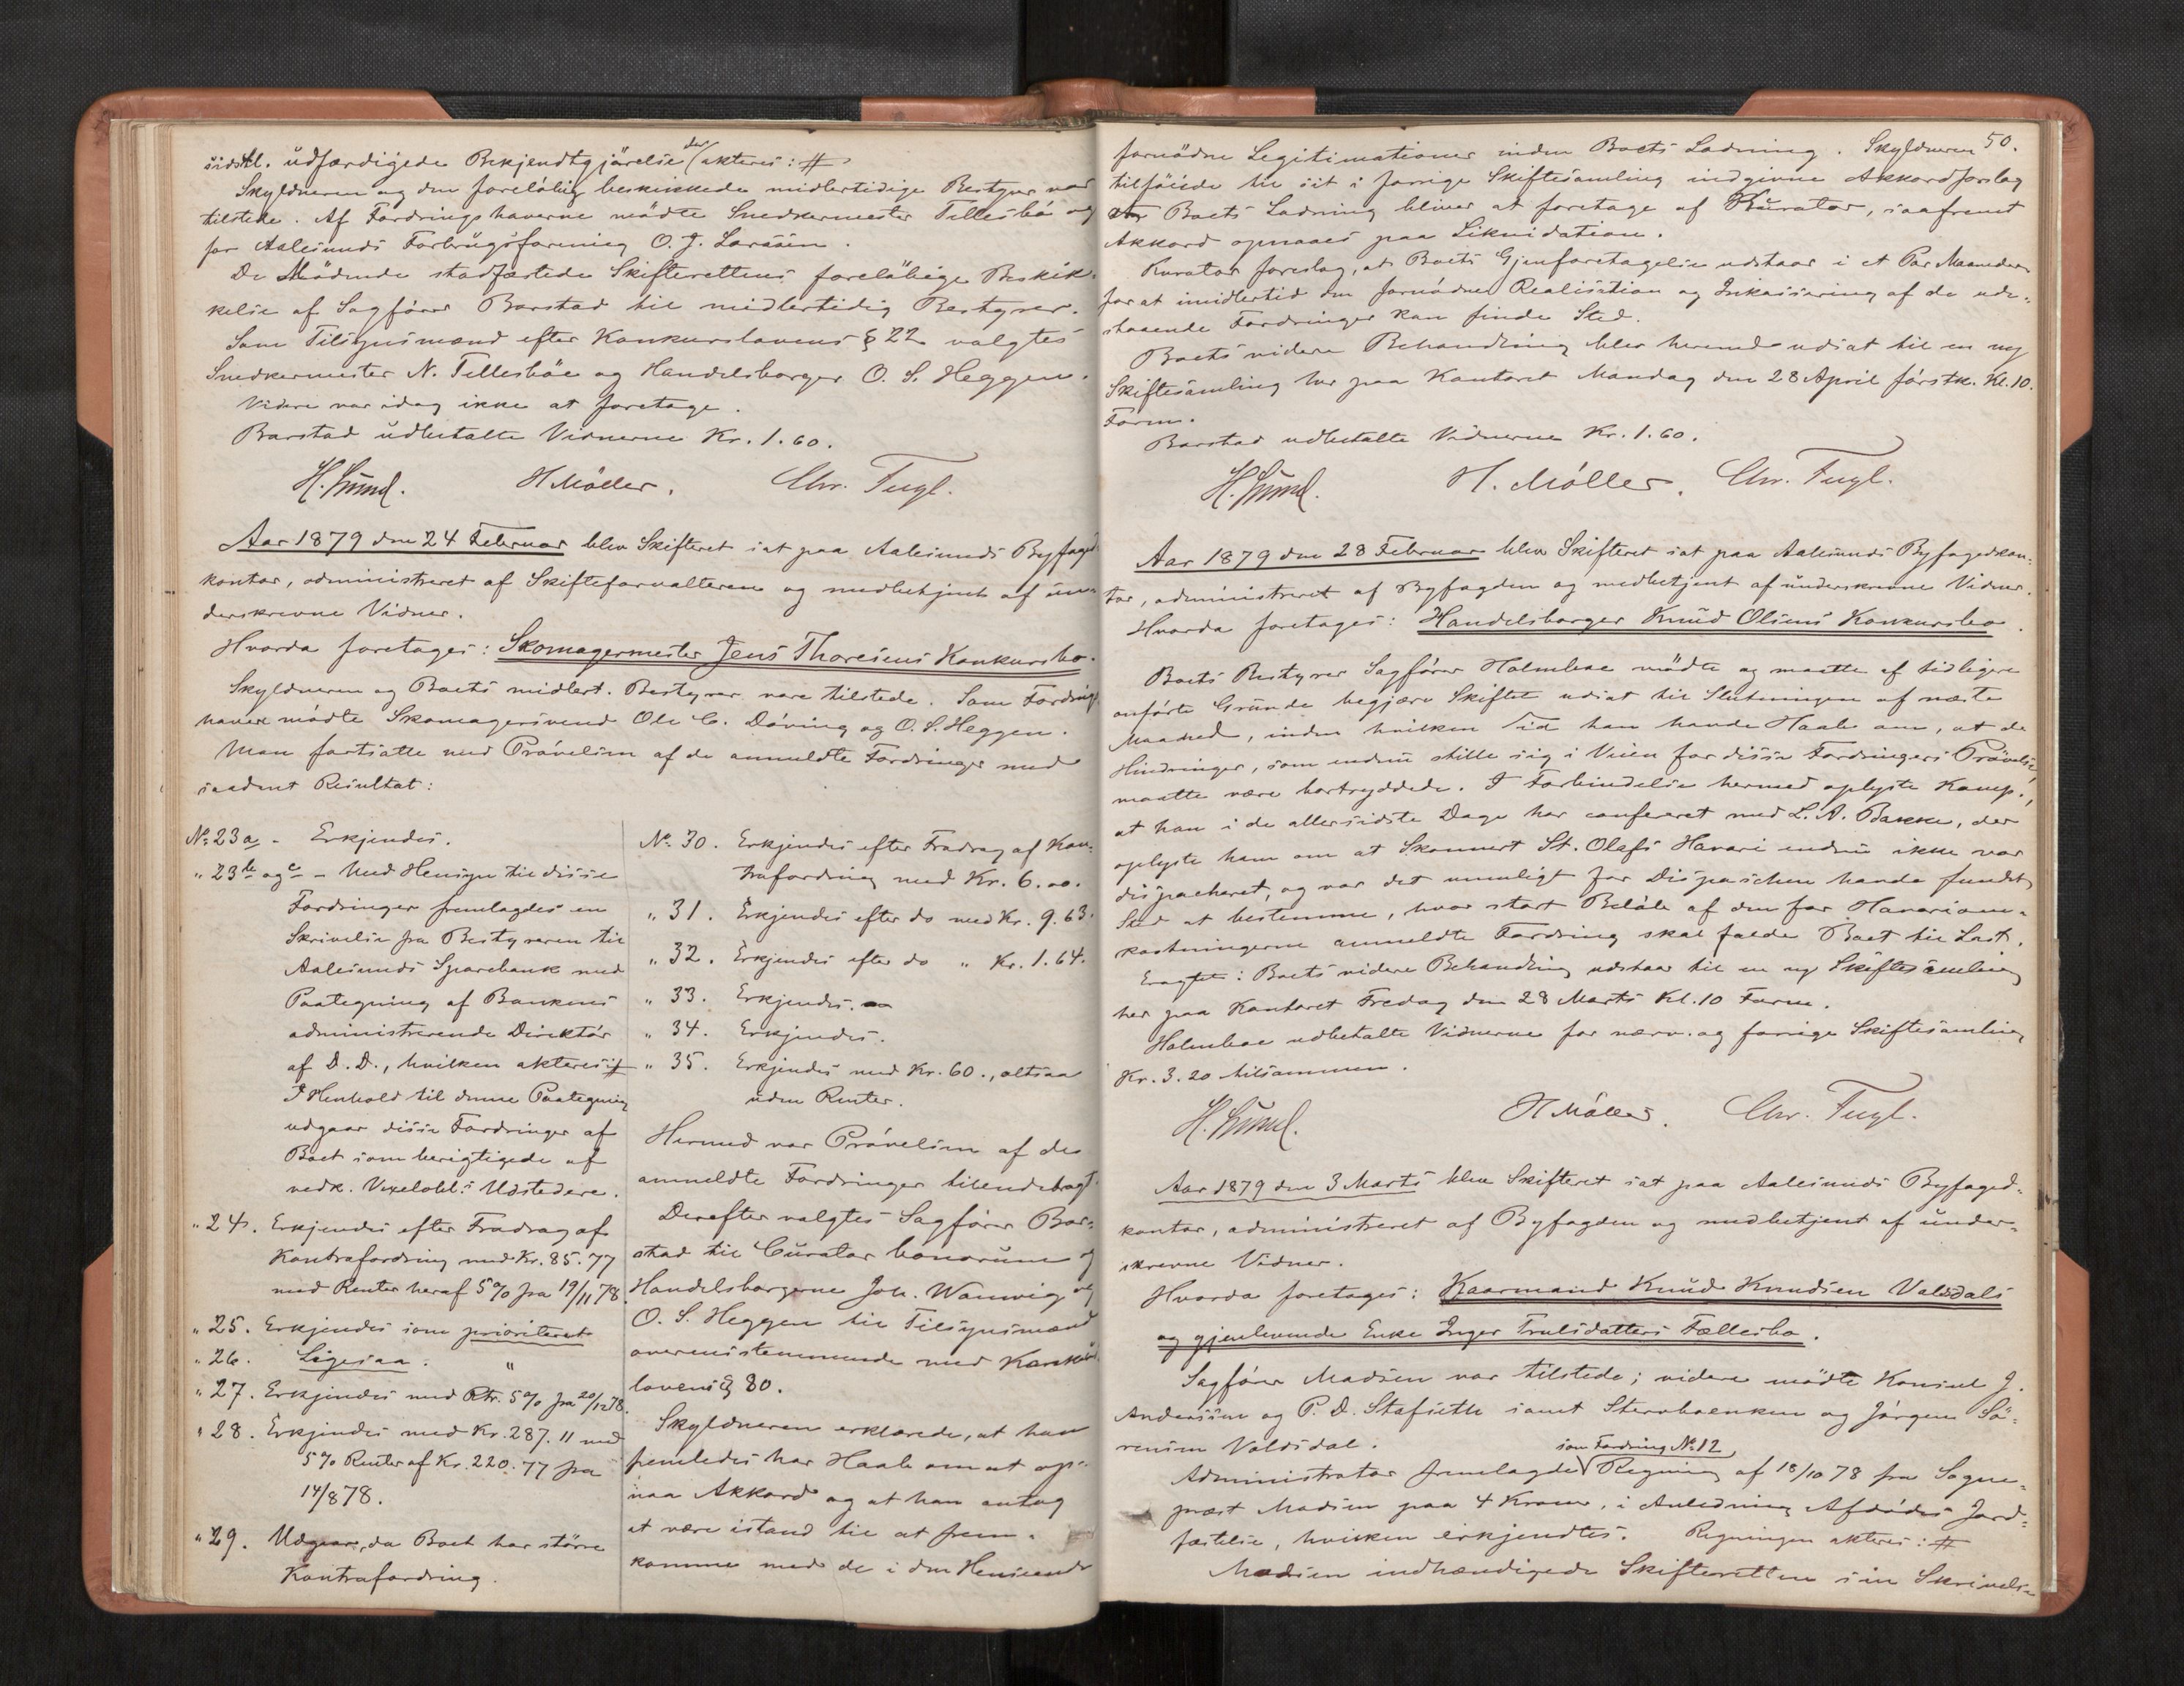 sidstl. udfærdigede Bekjendtgjörelse der akteres: #
Skyldneren og den foreløbig beskikkede midlertidige Bestyrer var
tilstede. Af Fordringshaverne mödte Snedkermester Tellesbö og
for Aalesunds Forbrugsforening O. J. Larssen.
De Mödende stadfæstede Skifterettens foreløbige Beskik-
kelse af Sagförer Barstad til midlertidig Bestyrer.
Som Tilsynsmænd efter Konkurslovens § 22 valgtes
Snedkermester N. Tellesböe og Handelsborger O. S. Heggen.
Videre var idag ikke at foretage.
Barstad udbetalte Vidnerne Kr. 1.60.
H. Lund. H Möller. Chr. Fugl.
Aar 1879 den 24 Februar blev Skifteret sat paa Aalesunds Byfoged-
kontor, administreret af Skifteforvalteren og medbetjent af un-
derskrevne Vidner.
Hvorda foretoges: Skomagermester Jens Thoresens Konkursbo.
Skyldneren og Boets midlert. Bestyrer vare tilstede. Som Fordrings-
havere mödte Skomagersvend Ole C. Döving og O. S. Heggen.
Man fortsatte med Prövelsen af de anmeldte Fordringer med
saadant Resultat:
No 23a - Erkjendes.
" 23b og c - Med Hensyn til disse
Fordringer fremlagdes en
Skrivelse fra Bestyreren til
Aalesunds Sparebank med
Paategning af Bankens
administrerende Direktör
af D. D., hvilken akteres #
I Henhold til denne Paategning
udgaar disse Fordringer af
Boet som berigtigede af
vedk. Vexelobl.s Udstedere.
" 24. Erkjendes efter Fradrag af
Kontrafordring med Kr. 85.77
med Renter heraf 5% fra 19/11 78
" 25. Erkjendes som prioriteret
" 26. Ligesaa. "
" 27. Erkjendes med Rtr. 5% fra 20/12 78.
" 28. Erkjendes med Kr. 287.11 med
5% Renter af Kr. 220.77 fra
14/8 78.
" 29. Udgaar, da Boet har större
Kontrafordring.
No 30. Erkjendes efter Fradrag af Kon-
trafordring med Kr. 6.00.
" 31. Erkjendes efter do med Kr. 9.63.
" 32. Erkjendes efter do " Kr. 1.64.
" 33. Erkjendes.
" 34. Erkjendes.
" 35. Erkjendes med Kr. 60., altsaa
uden Renter.
Hermed var Prövelsen af de
anmeldte Fordringer tilendebragt.
Derefter valgtes Sagförer Bar-
stad til Curator bonorum og
Handelsborgerne Joh. Wanvig og
O. S. Heggen til Tilsynsmænd
overensstemmende med Konkurs-
lovens § 80.
Skyldneren erklærede, at han
fremdeles har Haab om at op-
naa Akkord og at han antog
at være istand til at frem-
komme med de i den Henseende
50.
fornödne Legitimationer inden Boets Ladning. Skyldneren
tilföiede til sit i forrige Skiftesamling indgivne Akkordforslag
at Boets Ladning bliver at foretage af Kurator, saafremt
Akkord opnaaes paa Likvidation.
Kurator foreslog, at Boets Gjenforetagelse udstaar i et Par Maaneder
for at imidlertid den fornødne Realisation og Inkassering af de ude-
staaende Fordringer kan finde Sted.
Boets videre Behandling blev herved udsat til en ny
Skiftesamling her paa Kontoret Mandag den 28 April förstk. Kl. 10.
Form.
Barstad udbetalte Vidnerne Kr. 1.60.
H. Lund. H. Möller. Chr. Fugl.
Aar 1879 den 28 Februar blev Skifteret sat paa Aalesunds Byfogedkon-
tor, administreret af Byfogden og medbetjent af underskrevne Vidner.
Hvorda foretoges: Handelsborger Knud Olsens Konkursbo.
Boets Bestyrer Sagförer Holmboe mödte og maatte af tidligere
anförte Grunde begjære Skiftet udsat til Slutningen af næste
Maaned, inden hvilken Tid han havde Haab om, at de
Hindringer, som endnu stille sig i Veien for disse Fordringers Prövelse,
maatte være bortryddede. I Forbindelse hermed oplyste Komp.,
at han i de allersidste Dage har confereret med L. A. Bakke, der
oplyste ham om at Skonnert St. Olafs Havari endnu ikke var
dispacheret, og var det umuligt før Dispaschen havde fundet
Sted at bestemme, hvor stort Belöb af den for Havariom-
kostningerne anmeldte Fordring skal falde Boet til Last.
Eragtet: Boets videre Behandling udstaar til en ny Skiftesamling
her paa Kontoret Fredag den 28 Marts Kl. 10 Form.
Holmboe udbetalte Vidnerne for nærv. og forrige Skiftesamling
Kr. 3.20 tilsammen.
H. Lund. H Möller. Chr. Fugl.
Aar 1879 den 3 Marts blev Skifteret sat paa Aalesunds Byfoged-
kontor, administreret af Byfogden og medbetjent af under-
skrevne Vidner.
Hvorda foretoges: Kaarmand Knud Knudsen Valdsdals
og gjenlevende Enke Inger Trulsdatters Fællesbo.
Sagförer Madsen var tilstede; videre mödte Konsul J.
Anderssen og P. D. Stafseth samt Stervboenken og Jörgen Sö-
rensen Valdsdal.
Administrator fremlagde som Fordring No 12, Regning af 18/10 78 fra Sogne-
præst Madsen paa 4 Kroner, i Anledning Afdödes Jord-
fæstelse, hvilken erkjendtes. Regningen akteres: #
Madsen indhændigede Skifteretten sin Skrivelse